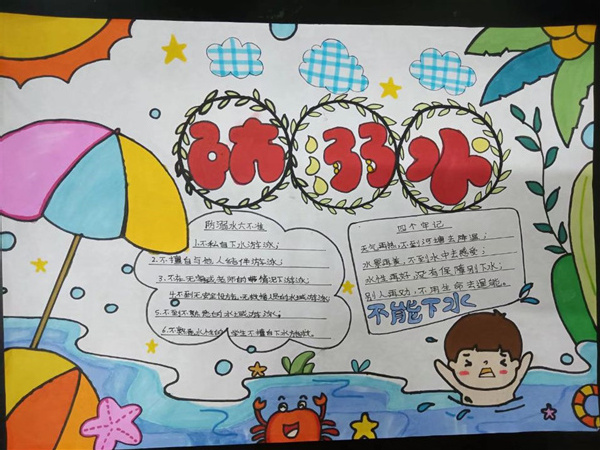 防溺水
防溺水六不准
1.不私自下水游泳；
2.不擅自与他人结伴游泳；
3.不在无家长或老师的带情况下游泳；
4.不到无安全设施、无救援人员的水域游泳；
5.不到不熟悉的水域游泳；
6.不熟悉水性的学生不擅自下水施救。
四个牢记
天气再热，不到河塘去降温；
水景再美，不到水中去感受；
水性再好，没有保障别下水；
别人再劝，不用生命去逞能。
不能下水